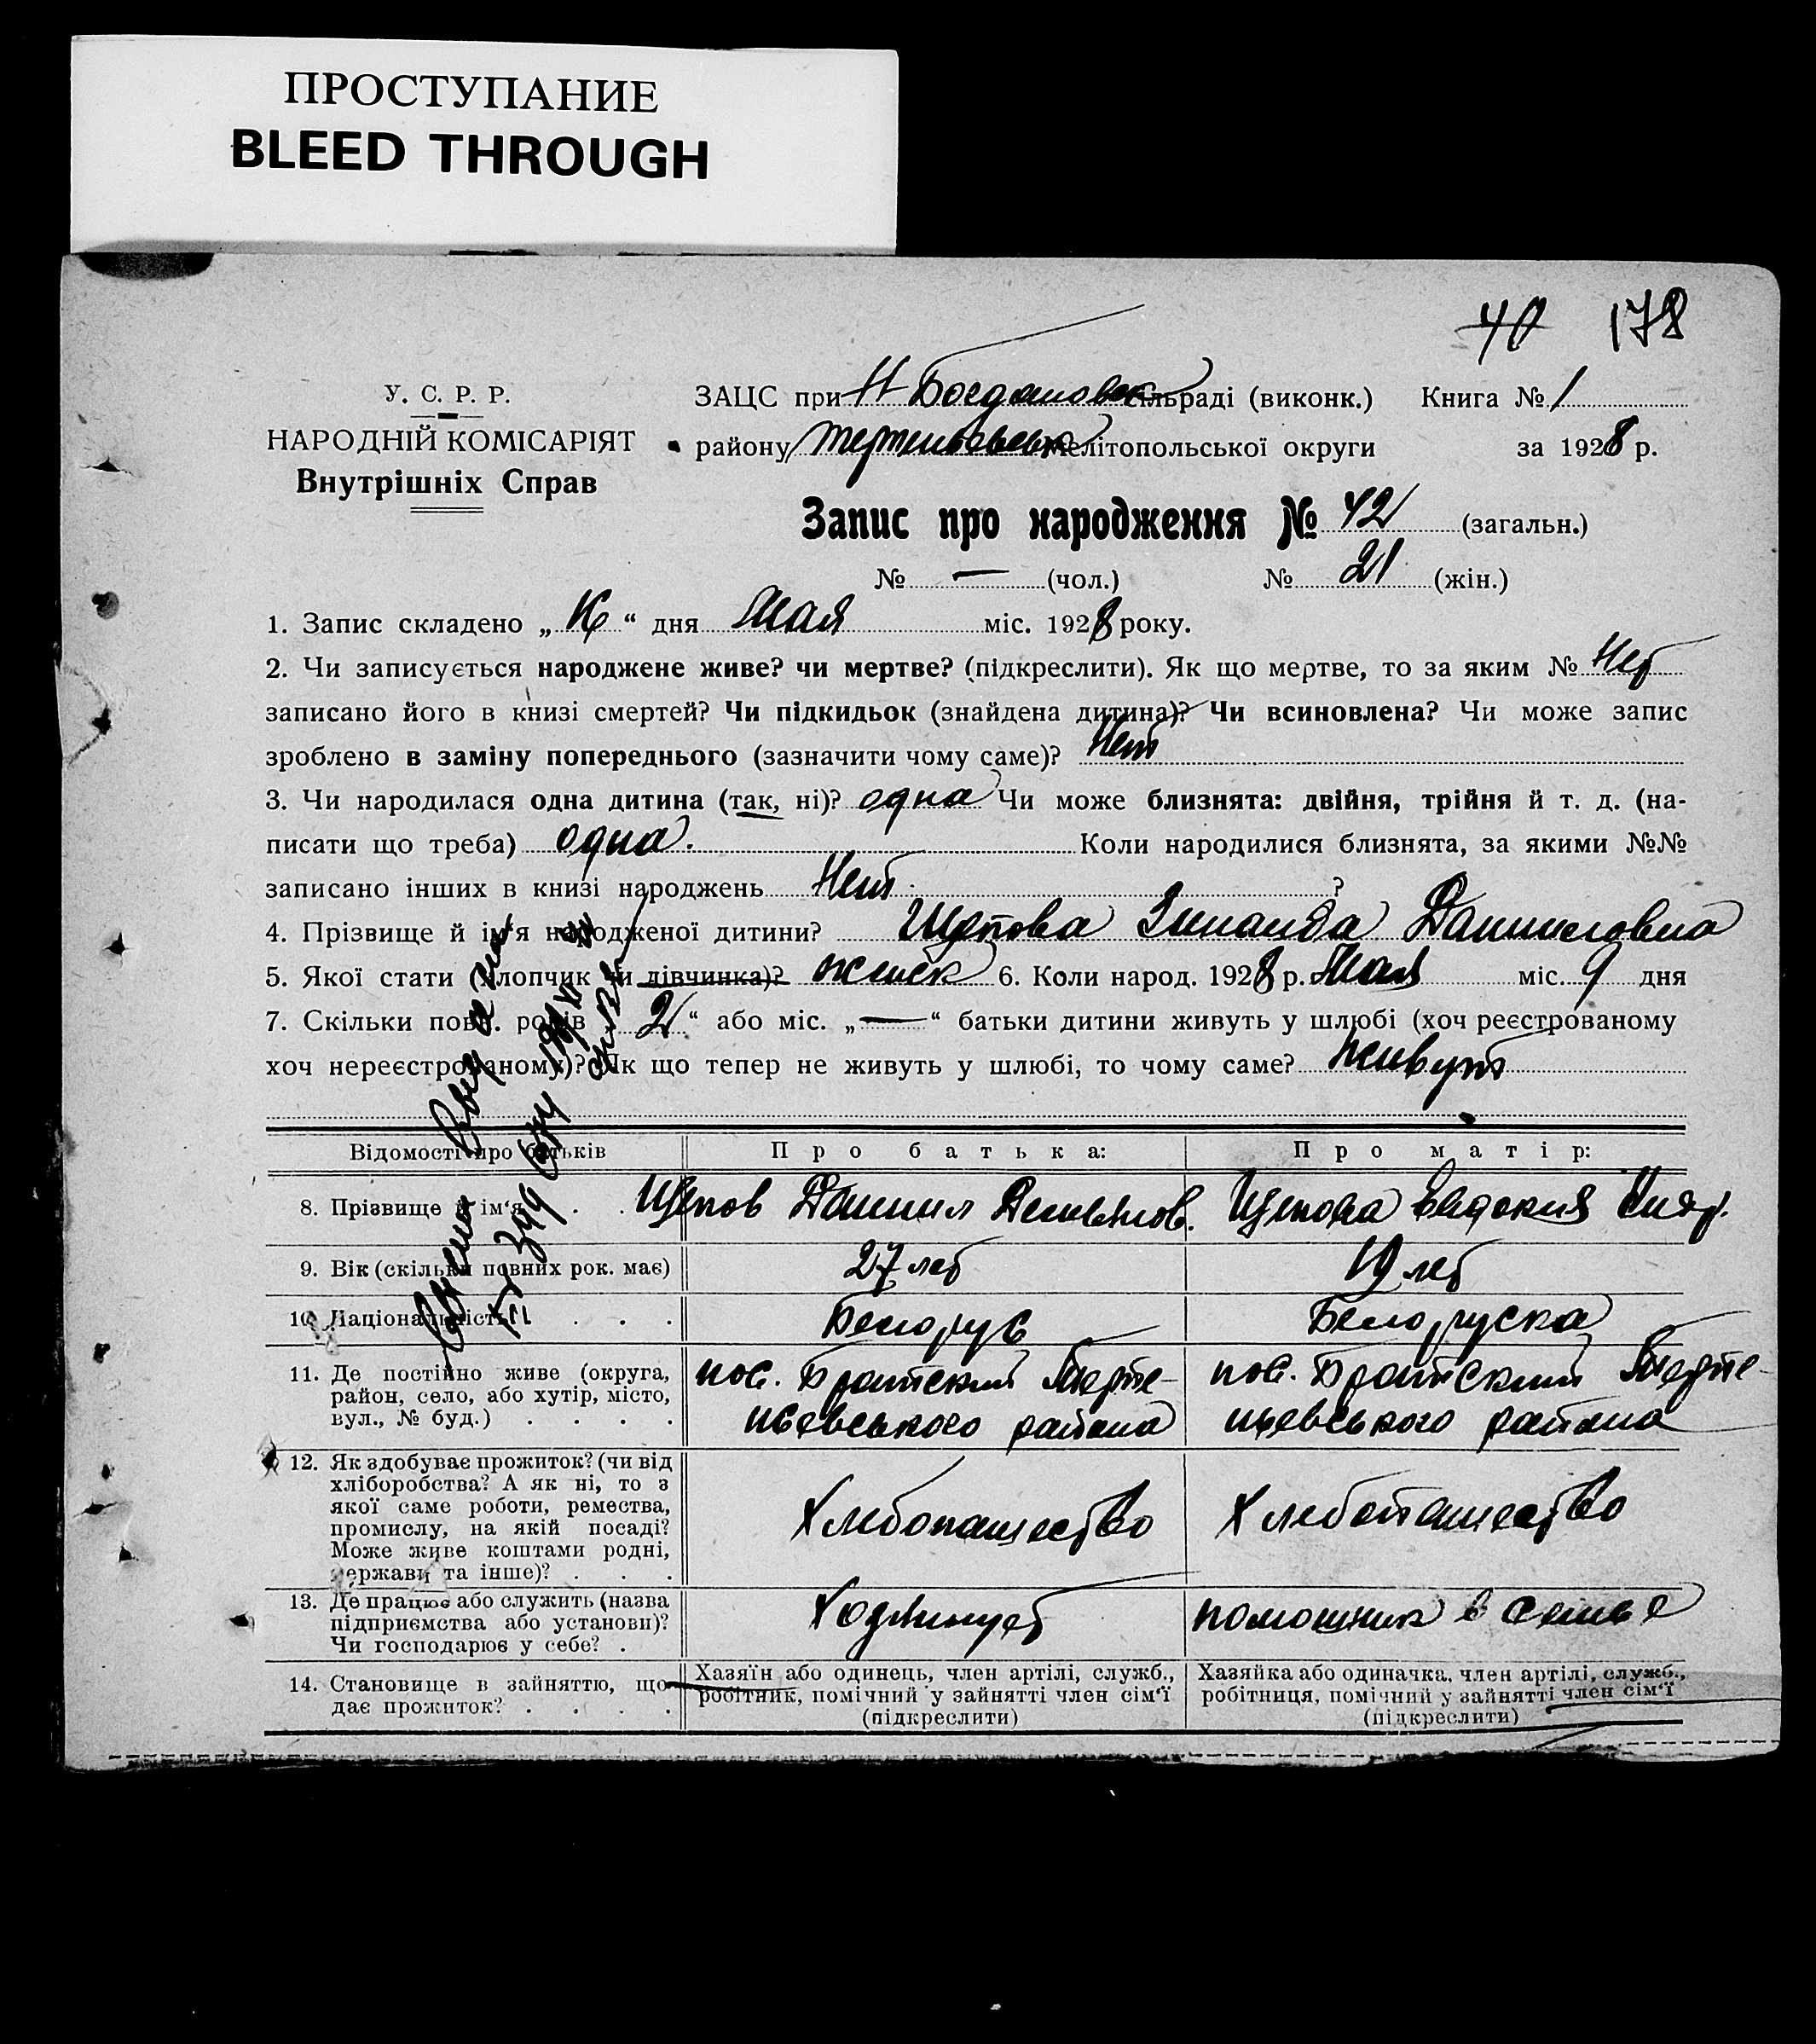 ПРОСТУПАНИЕ
BLEED THROUGH
40 178
У. С. Р. Р.
НАРОДНІЙ КОМІСАРІЯТ
Внутрішніх Справ
ЗАЦС при Н Богдановск сільраді (виконк.) Книга № 1
району Терпеньевськ Мелітопольської округи за 1928 р.
Запис про народження № 42 (загальн.)
№ — (чол.) № 21 (жін.)
1. Запис складено „ “ дня Мая міс. 1928 року.
2. Чи записується народжене живе? чи мертве? (підкреслити). Як що мертве, то за яким № Нет
записано його в книзі смертей? Чи підкидьок (знайдена дитина)? Чи всиновлена? Чи може запис
зроблено в заміну попереднього (зазначити чому саме)? Нет
3. Чи народилася одна дитина (так, ні)? одна Чи може близнята: двійня, трійня й т. д. (на-
писати що треба) одна. Коли народилися близнята, за якими №№
записано інших в книзі народжень Нет ?
4. Прізвище й ім‘я народженої дитини? Щепова Зинаида Данииловна
5. Якої стати (хлопчик чи дівчинка)? женск 6. Коли народ. 1928 р. Мая міс. 9 дня
7. Скільки повн. років „ 2 “ або міс. „ — “ батьки дитини живуть у шлюбі (хоч реєстрованому
хоч нереєстрованому)? Як що тепер не живуть у шлюбі, то чому саме? живут
Відомості про батьків Про батька: Про матір:
8. Прізвище й ім‘я . . Щепов Даниил Демьянов. Щепова Евдокия
9. Вік (скільки повних рок. має) 27 лет 19 лет
10. Національність . . . Белорус Белоруска
11. Де постійно живе (округа, район, село, або хутір, місто, вул., № буд.) . . . .
пос. Братский Терпе-
ньевського района
пос. Братский Терпе-
ньевського района
12. Як здобуває прожиток? (чи від
хліборобства? А як ні, то з
якої саме роботи, ремества,
промислу, на якій посаді?
Може живе коштами родні,
держави та інше)? . . .
Хлебопашество Хлебопашество
13. Де працює або служить (назва
підприємства або установи)?
Чи господарює у себе? .
помощник в семье
14. Становище в зайняттю, що
дає прожиток? . . . .
Хазяїн або одинець, член артілі, служб.,
робітник, помічний у зайнятті член сім‘ї
(підкреслити)
Хазяйка або одиначка, член артілі, служб.,
робітниця, помічний у зайнятті член сім‘ї
(підкреслити)